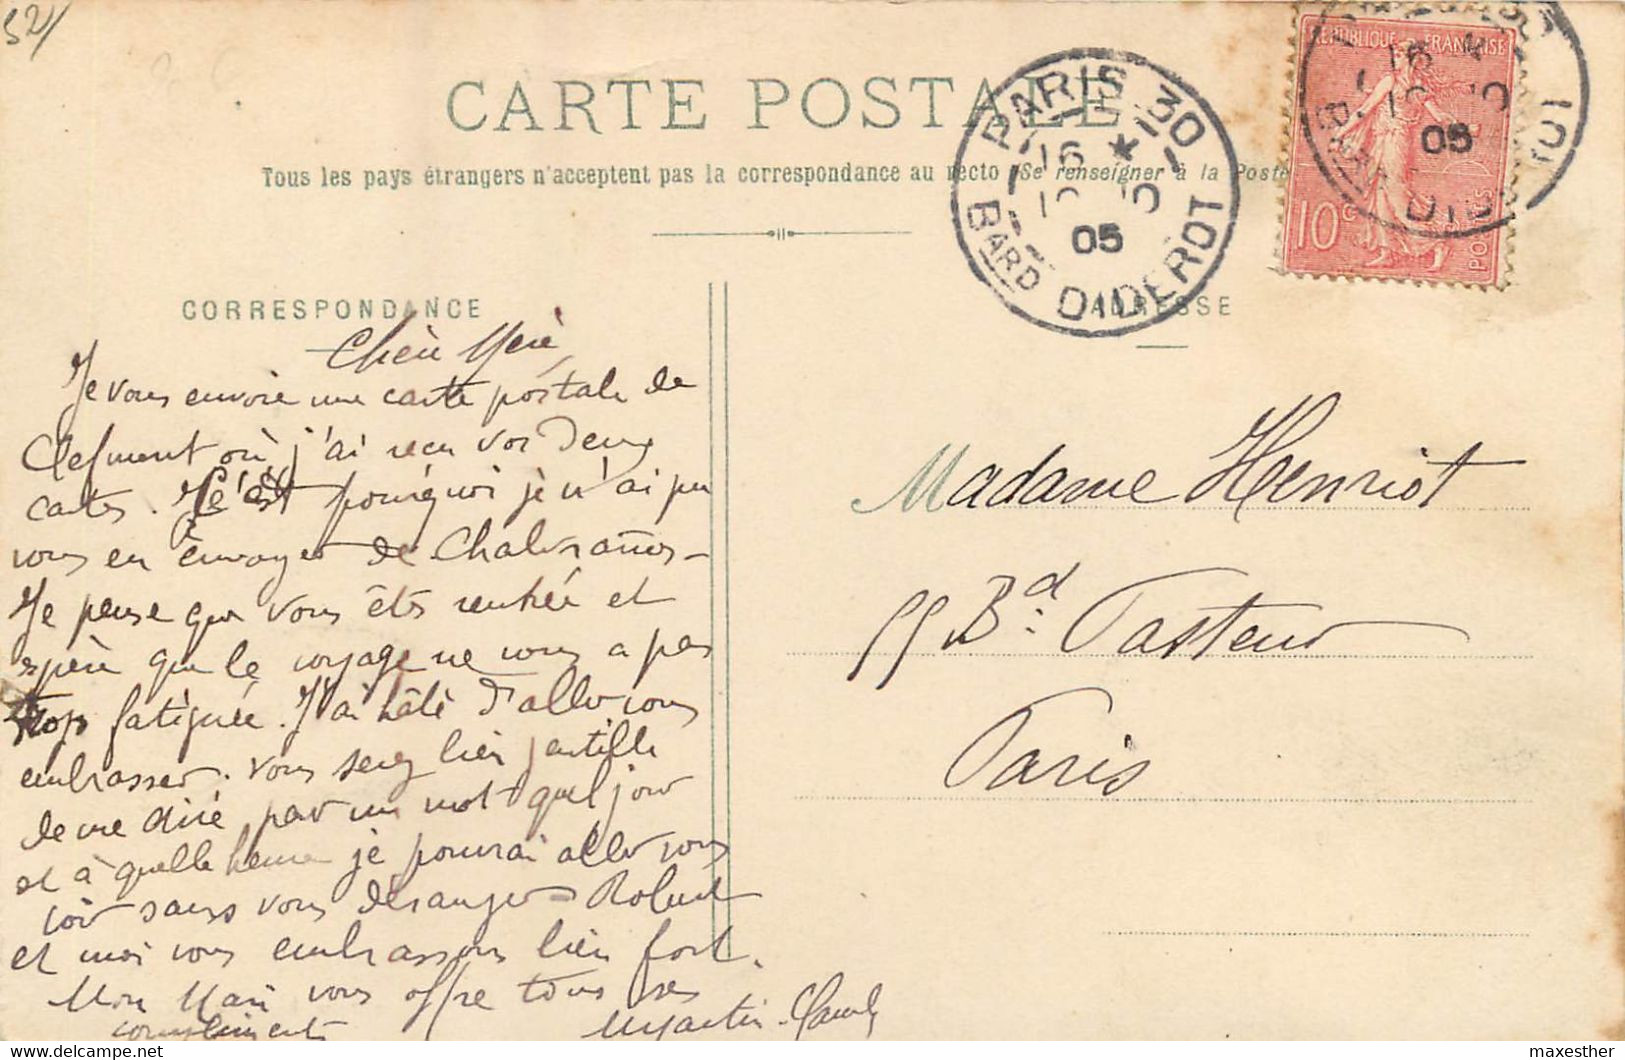 52
CARTE POSTALE
Tous les pays étrangers n'acceptent pas la correspondance au recto (Se renseigner à la Poste
PARIS 30
16 *
05
BARD DIDEROT
RÉPUBLIQUE FRANÇAISE
10c
POSTES
16
05
CORRESPONDANCE
ADRESSE
Je vous envoie une carte postale de
où j'ai reçu vos deux
cartes. c'est pourquoi je n'ai pu
vous en envoyer de
Je pense que vous êtes rentrée et
espère que le voyage ne vous a pas
trop fatiguée. J'ai hâte d'aller vous
embrasser. Vous serez bien gentille
de me dire par un mot quel jour
et à quelle heure je pourrai aller vous
voir sans vous déranger
et moi vous embrassons bien fort.
Mon Mari vous offre tous ses
compliments
Martin
Madame Henriot
55 Bd. Pasteur
Paris
www.delcampe.net
maxesther